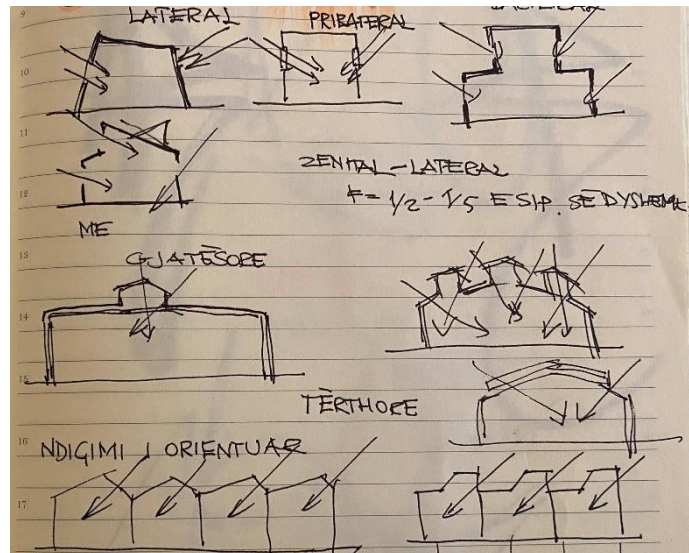 9
LATERAL
PRIBATERAL
10
11
ZENITAL-LATERAL
12
F= 1/2 - 1/5 E SIP. SË DYSHEME
ME
13
GJATËSORE
14
15
TËRTHORE
16
NDIGIMI I ORIENTUAR
17